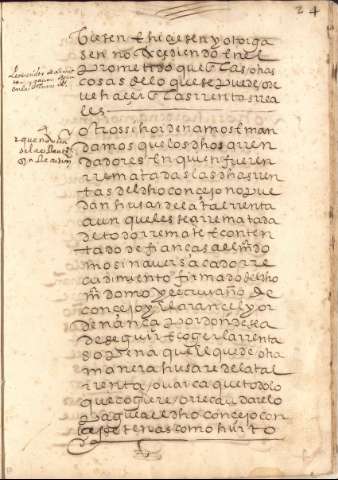 24
hizieren e hiziesen y otorga
sen no excediendo en el
prometido que las dhas
cosas dello que se puede de
ue hazer las rrentas rrea
les
otrossi hordenamos e man
damos que los dhos arren
dadores en quien fueren
rrematadas las dhas rren
tas del dho concejo no pue
dan husar de la tal rrenta
aunque les sea rrematada
de todo rremate e conten
tado de fianças al m̃do
mo sin aver sacado rre
cudimiento firmado del dho
m̃domo y escriuano de
concejo y el aranzel y or
denança por donde sea
de seguir e coger la rrenta
so pena quel que de otra
manera husare de la tal
rrenta o uarca que todo lo
que cogiere o rrecaudare lo
pague al dho concejo con
las setenas como hurto